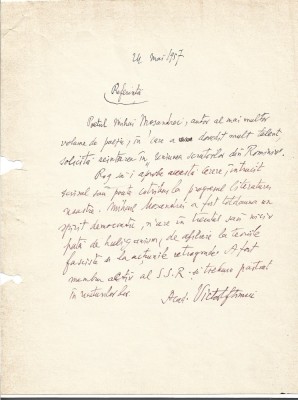 24 mai 1957
Referință
Poetul Mihai Moșandrei, autor al mai multor
volume de poezie, în care a dovedit mult talent
solicită reintrarea în "Uniunea scriitorilor din Romînia".
Rog să-i aprobe această cerere, întrucît
scrisul său poate contribui la progresul literaturii
noastre. Mihail Moșandrei a fost totdeauna un
spirit democratic, n'are în trecutul său nici o
pată de huliganism, de afiliere la teoriile
fasciste și la acțiunile retrograde. A fost
membru activ al S.S.R. și trebuie păstrat
în rîndurile lor
Acad. Victor Eftimiu